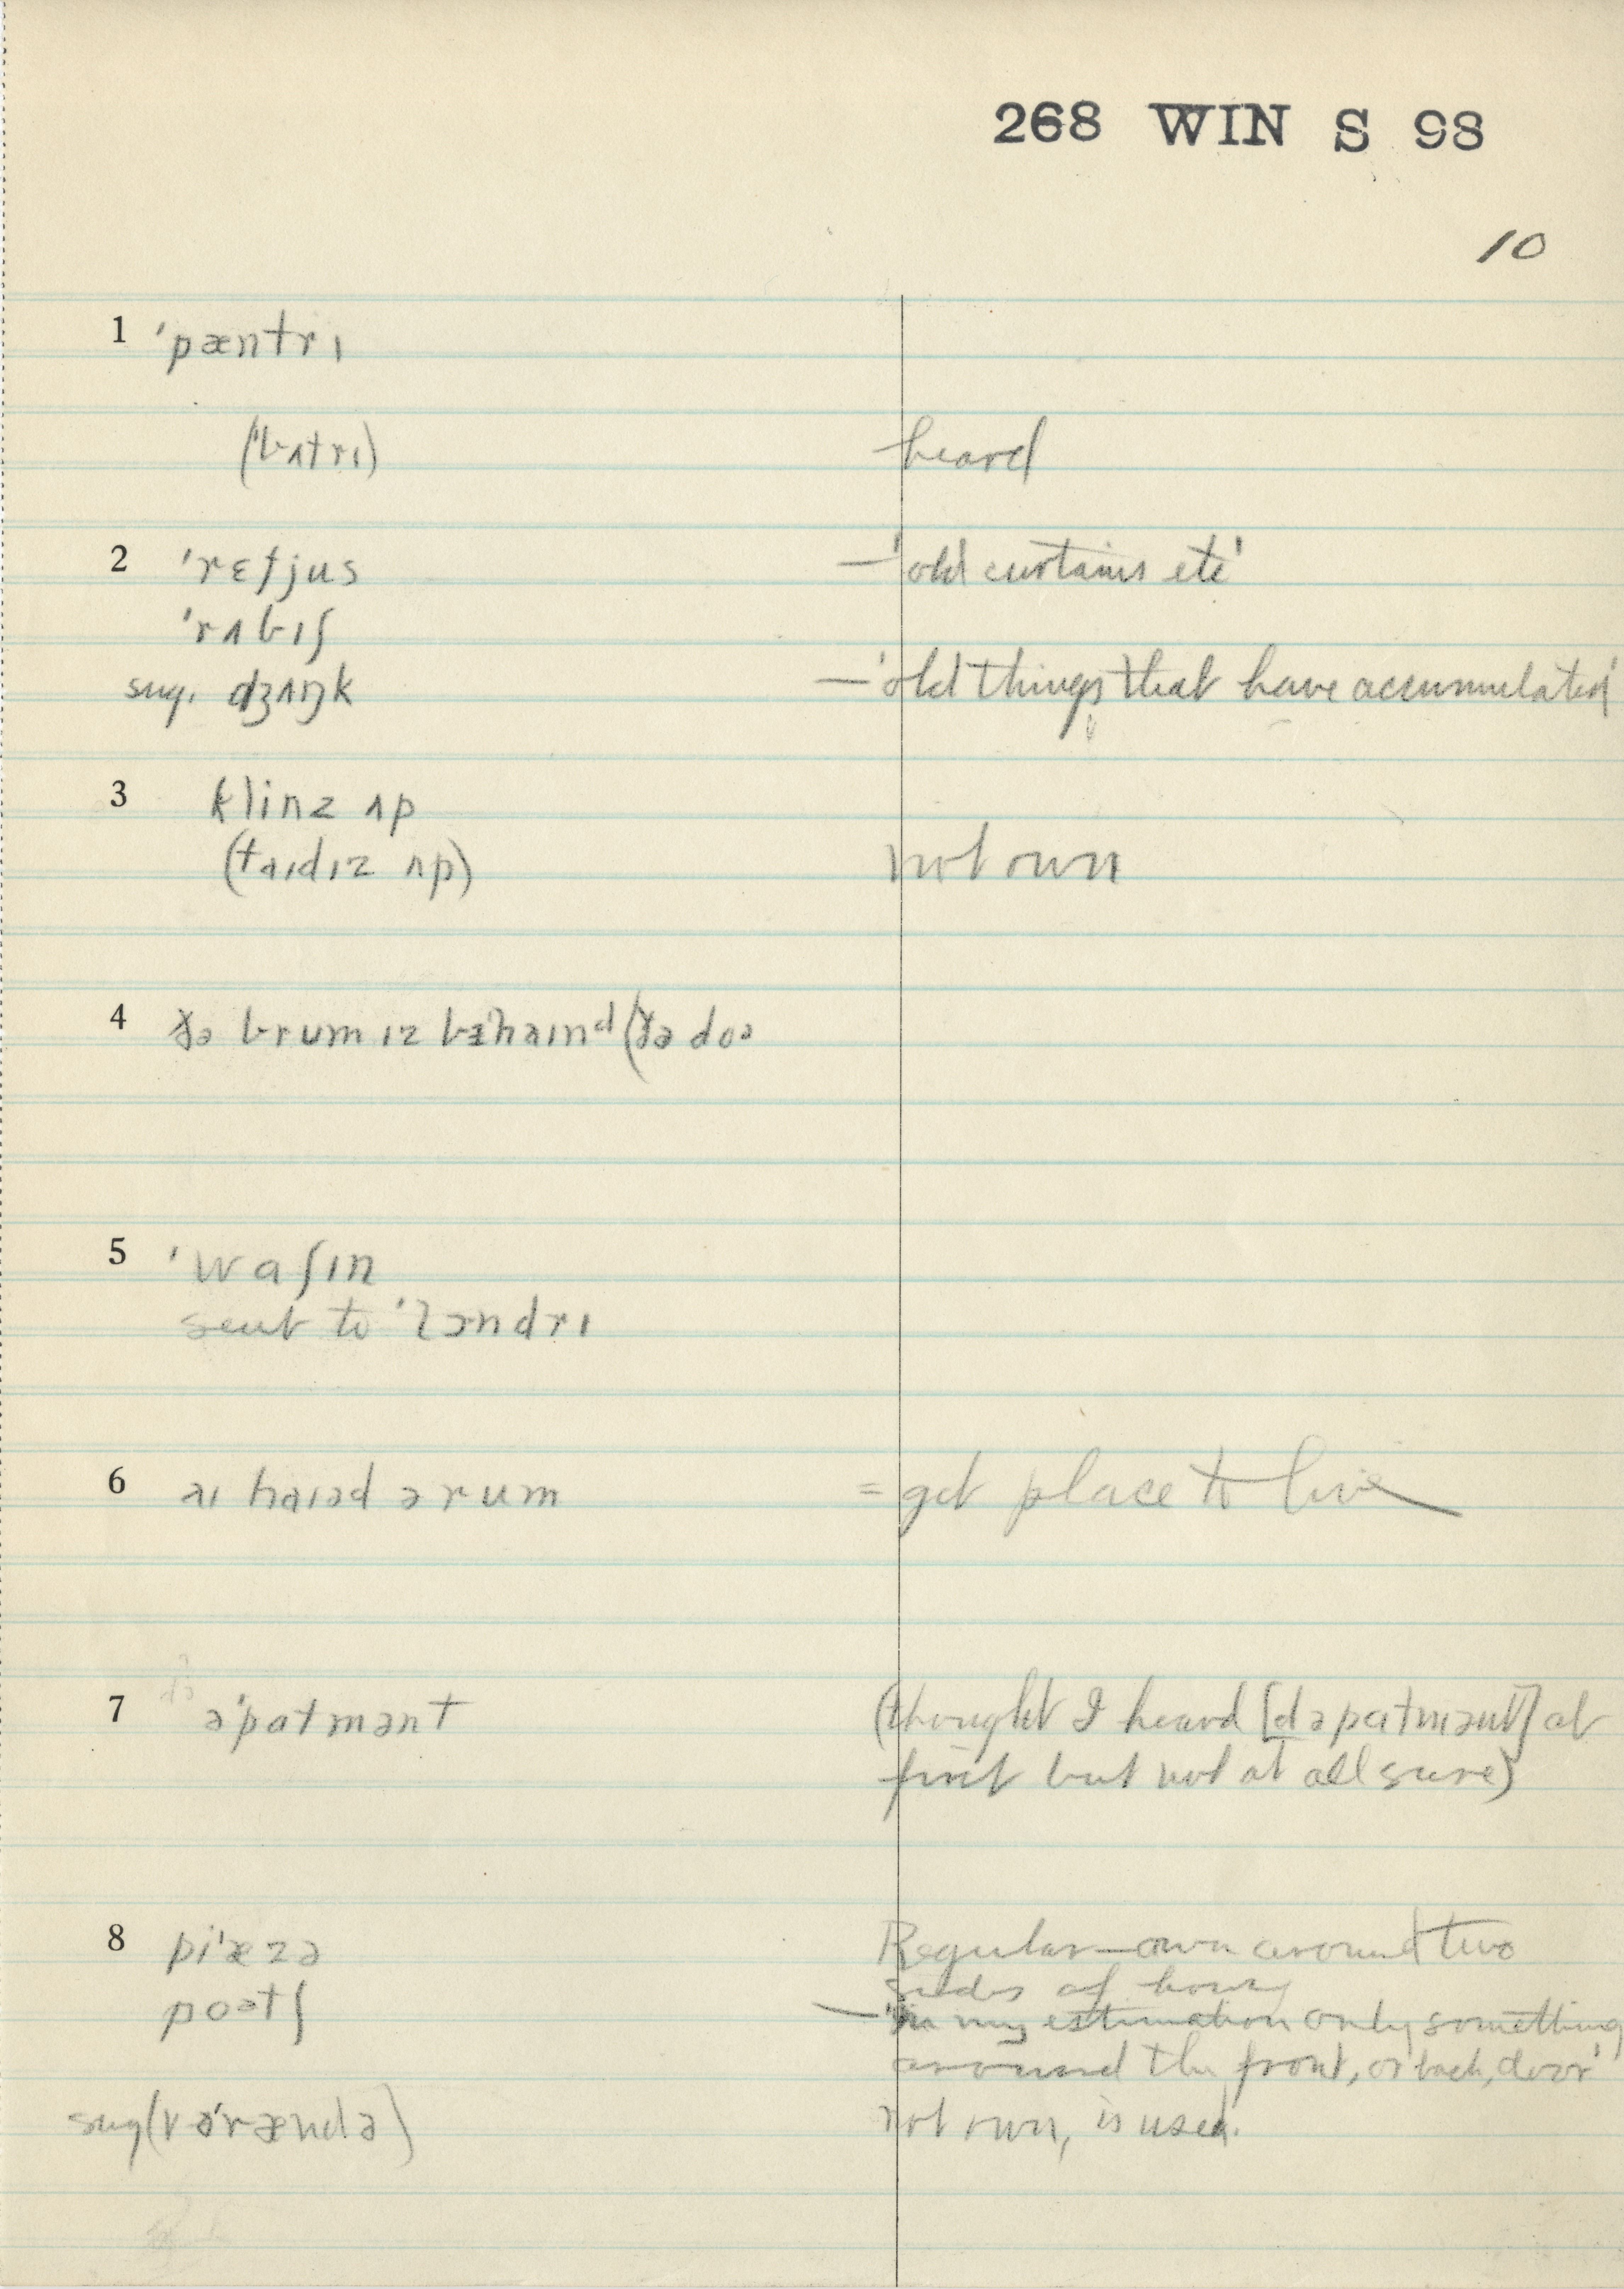 268 WIN S 98
10
1 ˈpæntrɪ
(ˈbʌtrɪ) heard
2 ˈrɛfjus —'old curtains etc'
ˈrʌbɪʃ
sug. dʒʌŋk —'old things that have accumulated'
3 klinz ʌp
(taɪdɪz ʌp) not own
4 ðə brum ɪz bɪˈhaɪnd (ðə doə
5 ˈwaʃɪn
sent to ˈlɔndrɪ
6 aɪ haɪəd ə rum = get place to live
7 əˈpatmənt (thought I heard [dəpatmənt] at
first but not at all sure)
8 piˈæzə Regular—own around two
sides of house
poətʃ —'in my estimation only something
around the front, or back, door'
sug (vəˈrændə) not own, is used.